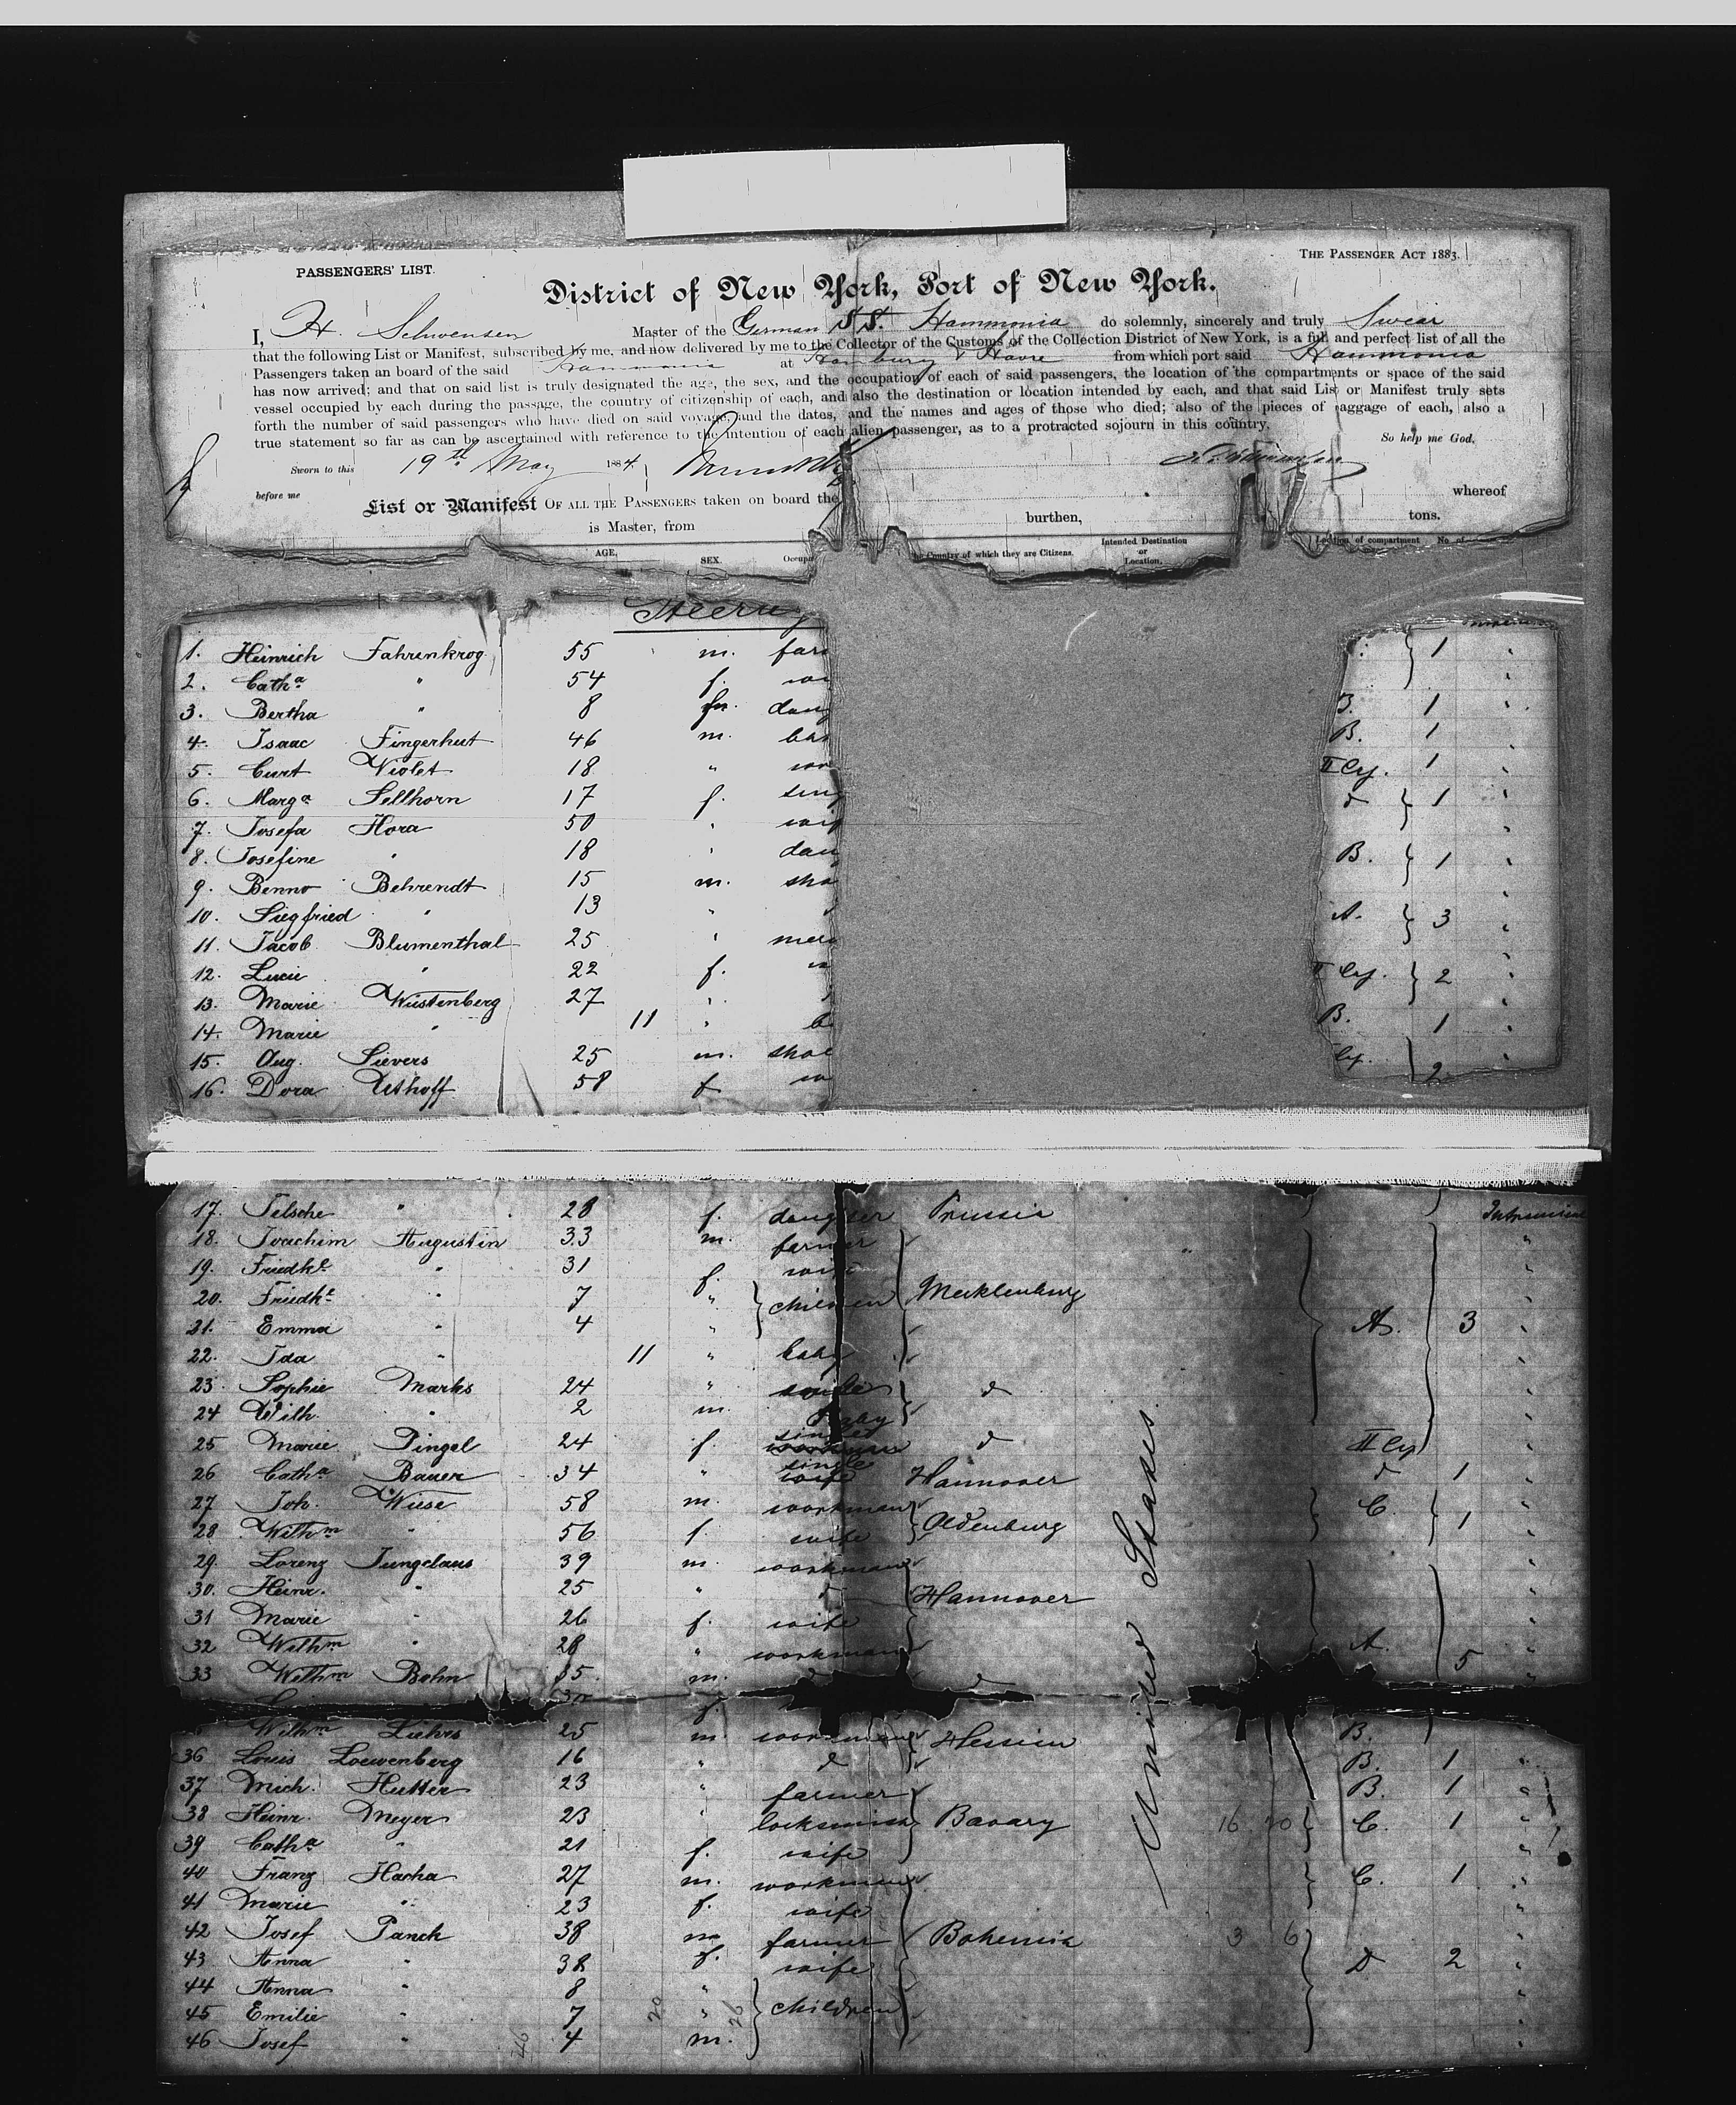 PASSENGERS' LIST.
THE PASSENGER ACT 1883.
District of New York, Port of New York.
I, H. Schwensen Master of the German SS. Hammonia do solemnly, sincerely and truly Swear
that the following List or Manifest, subscribed by me, and now delivered by me to the Collector of the Customs of the Collection District of New York, is a full and perfect list of all the
Passengers taken an board of the said Hammonia at Hamburg & Havre from which port said Hammonia
has now arrived; and that on said list is truly designated the age, the sex, and the occupation of each of said passengers, the location of the compartments or space of the said
vessel occupied by each during the passage, the country of citizenship of each, and also the destination or location intended by each, and that said List or Manifest truly sets
forth the number of said passengers who have died on said voyage, and the dates, and the names and ages of those who died; also of the pieces of baggage of each, also a
true statement so far as can be ascertained with reference to the intention of each alien passenger, as to a protracted sojourn in this country.
So help me God,
Sworn to this 19th May 1884
before me
List or Manifest OF ALL THE PASSENGERS taken on board the whereof
is Master, from burthen, tons.
AGE. SEX. Occupa the Country of which they are Citizens. Intended Destination or Location. Location of compartment No. of
Steerag
1. Heinrich Fahrenkrog 55 m. far 1
2. Catha " 54 f.
3. Bertha " 8 daug B. 1
4. Isaac Fingerhut 46 m. B. 1
5. Curt Violet 18 " II Cy. 1
6. Marga Sellhorn 17 f. sing d 1
7. Josefa Hora 50 " wif
8. Josefine " 18 " dau B. 1
9. Benno Behrendt 15 m. sho
10. Siegfried " 13 " A. 3
11. Jacob Blumenthal 25 " mer
12. Lucie " 22 f. II Cy. 2
13. Marie Wüstenberg 27 "
14. Marie " 11 " b B. 1
15. Aug. Sievers 25 m. shoe Cy.
16. Dora Uthoff 58 f 2
17. Telsche " 28 f. daughter Prussia
18. Joachim Augustin 33 m. farmer
19. Friedke " 31 f. wife
20. Friedke " 7 " children Mecklenburg
21. Emma " 4 " A. 3
22. Ida " 11 " baby
23. Sophie Marks 24 " single d
24 Wilh. " 2 m. baby
25 Marie Pingel 24 f. single d II Cy
26 Catha Bauer 34 " single wife Hannover d 1
27 Joh. Wiese 58 m. workman C.
28 Wilhm " 56 f. wife Oldenburg 1
29. Lorenz Jungclaus 39 m. workman
30. Heinr. " 25 " d Hannover
31 Marie " 26 f. wife
32 Wilhm " 28 " workman A.
33 Wilhm Bohn 35 m. d d 5
f.
Wilhm Lührs 25 m. workman Hessen B.
36 Louis Loewenberg 16 " d B. 1
37 Mich. Hutter 23 " farmer B. 1
38 Heinr. Meyer 23 " locksmith Bavary 16 20 C. 1
39 Catha " 21 f. wife
40 Franz Harha 27 m. workman C. 1
41 Marie " 23 f. wife
42 Josef Panck 38 m farmer Bohemia 3 6
43 Anna " 38 f. wife D 2
44 Anna " 8 "
45 Emilie " 7 " children
46 Josef " 4 m.
United States
46 20 26